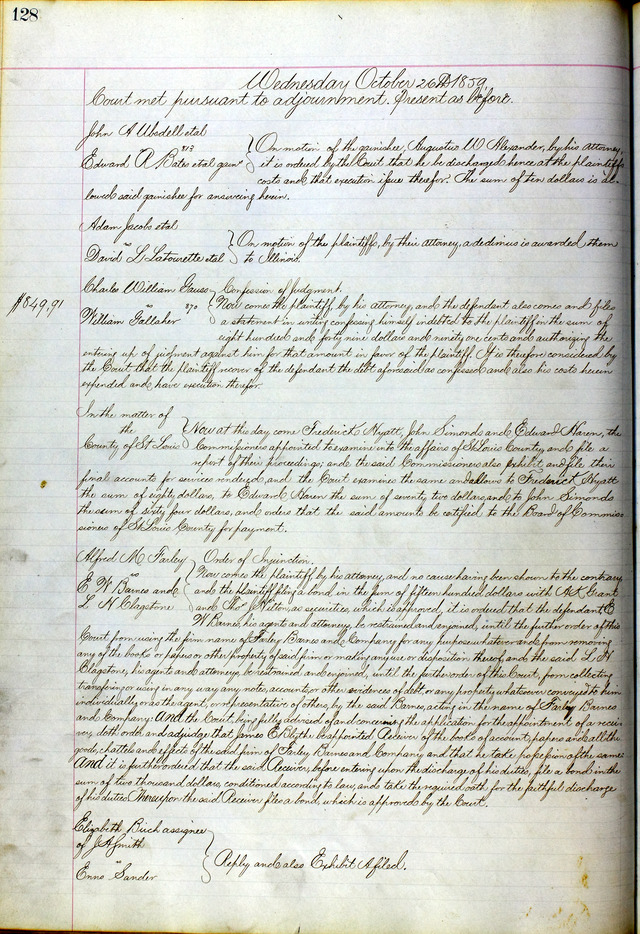 128
Wednesday October 26th 1859
Court met pursuant to adjournment. Present as before.
John A Ubsdell etal
vs 813
Edward R Bates etal garn
On motion of the garnishee, Augustus W Alexander, by his attorney,
it is ordered by the Court that he be discharged hence at the plaintiffs
costs and that execution issue therefor. The sum of ten dollars is al-
lowed said garnishee for answering herein.
Adam Jacobs etal
vs
David L Latourette etal
On motion of the plaintiffs, by their attorney, a dedimus is awarded them
to Illinois.
$849.91
Charles William Gauss
vs 870
William Gallaher
Confession of Judgment.
Now comes the plaintiff by his attorney, and the defendant also comes and files
a statement in writing confessing himself indebted to the plaintiff in the sum of
eight hundred and forty nine dollars and ninety one cents and authorizing the
entering up of judgment against him for that amount in favor of the plaintiff. It is therefore considered by
the Court that the plaintiff recover of the defendant the debt aforesaid as confessed and also his costs herein
expended and have execution therefor.
In the matter of
the
County of St Louis
Now at this day come Frederick Hyatt, John Simonds and Edward Haren, the
Commissioners appointed to examine into the affairs of St Louis County, and file a
report of their proceedings, and the said Commissioners also exhibit and file their
final accounts for services rendered, and the Court examines the same and allows to Frederick Hyatt
the sum of eighty dollars, to Edward Haren the sum of seventy two dollars, and to John Simonds
the sum of sixty four dollars, and orders that the said amounts be certified to the Board of Commis-
sioners of St Louis County for payment.
Alfred M Farley
vs
E W Barnes and
L H Clagstone
Order of Injunction.
Now comes the plaintiff by his attorney, and no cause having been shown to the contrary
and the plaintiff filing a bond in the sum of fifteen hundred dollars with
and Thos as securities, which is approved, it is ordered that the defendant E
W Barnes, his agents and attorney, be restrained and enjoined, until the further order of this
Court from using the firm name of Farley Barnes and Company for any purpose whatever and from removing
any of the books or papers or other property of said firm or making any use or disposition thereof, and the said L H
Clagstone, his agents and attorneys be restrained and enjoined, until the further order of this Court, from collecting
transferring or using in any way any note, accounts or other evidences of debt, or any property whatsoever conveyed to him
individually or as the agent, or representative of others, by the said Barnes, acting in the name of Farley Barnes
and Company. And the Court, being fully advised of and concerning the application for the appointment of a receiv-
er, doth order and adjudge that James E Blythe be appointed Receiver of the books of account, papers and all the
goods, chattels and effects of the said firm of Farley Barnes and Company and that he take possession of the same
And it is further ordered that the said Receiver, before entering upon the discharge of his duties, file a bond in the
sum of two thousand dollars, conditioned according to law, and take the required oath for the faithful discharge
of his duties. Thereupon the said Receiver files a bond, which is approved by the Court.
Elizabeth Birch assignee
of J A Smith
vs
Enno Sander
Reply and also Exhibit A filed.